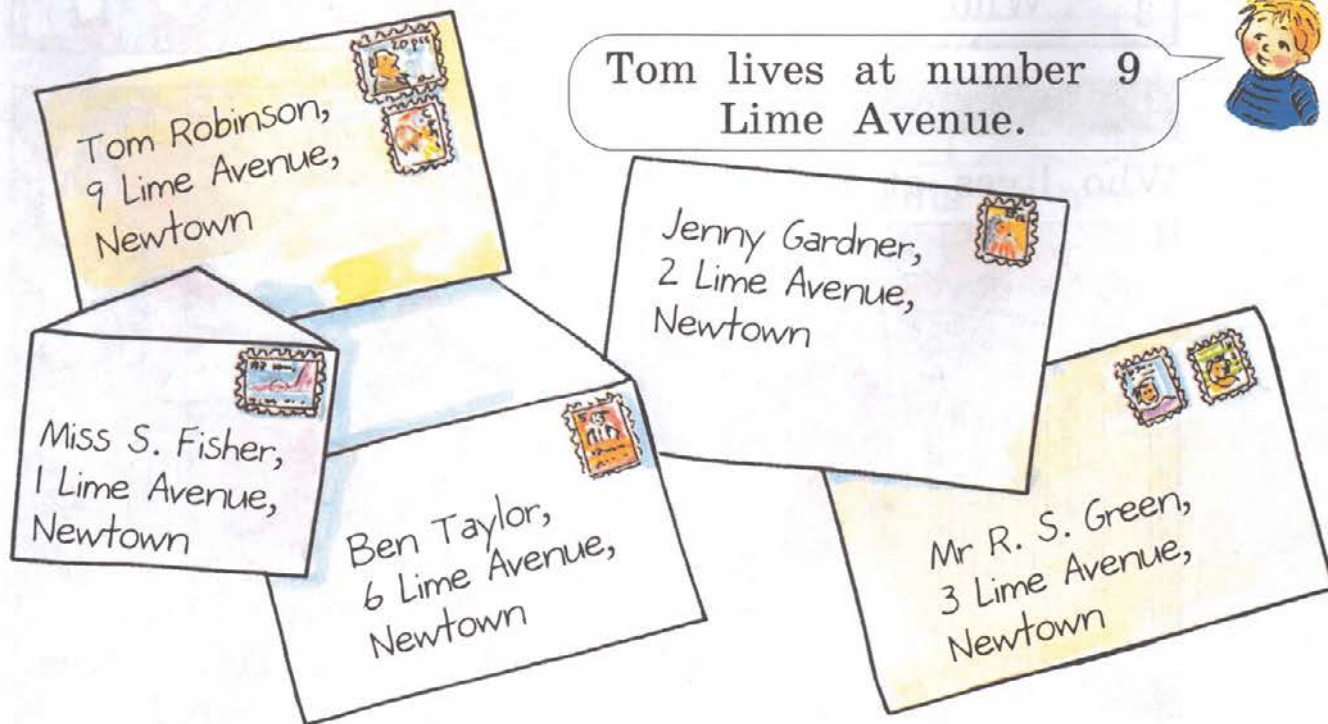 Tom lives at number 9
Lime Avenue.
Tom Robinson,
9 Lime Avenue,
Newtown
Jenny Gardner,
2 Lime Avenue,
Newtown
Miss S. Fisher,
1 Lime Avenue,
Newtown
Ben Taylor,
6 Lime Avenue,
Newtown
Mr R. S. Green,
3 Lime Avenue,
Newtown